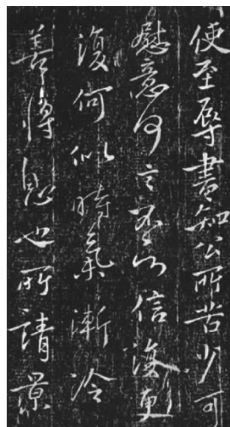 使至辱書知公所苦少可
慰意何言信後更
復何似時氣漸冷
善將息也所請景